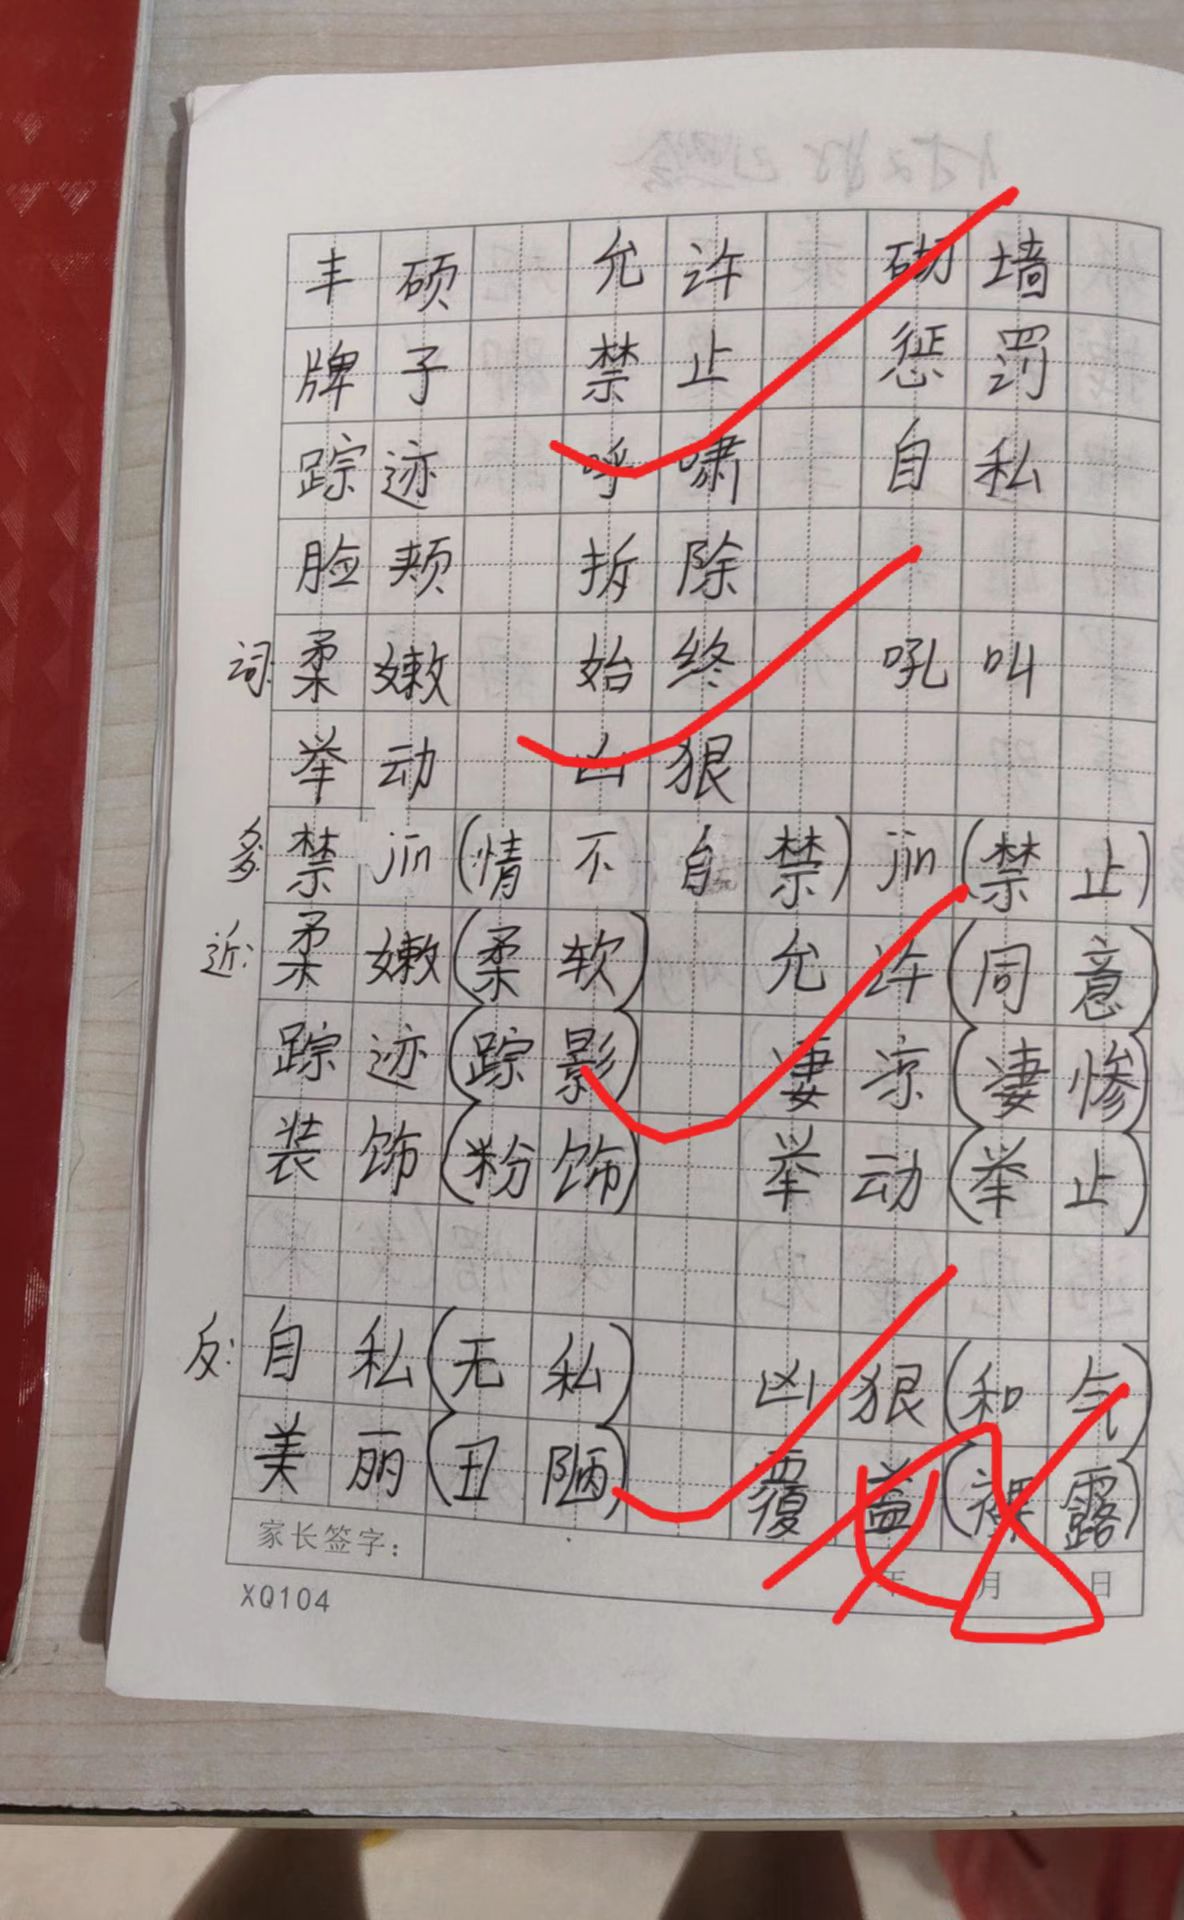 丰硕 允许 砌墙
牌子 禁止 惩罚
踪迹 呼啸 自私
脸颊 拆除
词:柔嫩 始终 吼叫
举动 凶狠
多:禁 jīn(情不自禁) jìn(禁止)
近:柔嫩(柔软) 允许(同意)
踪迹(踪影) 凄凉(凄惨)
装饰(粉饰) 举动(举止)
反:自私(无私) 凶狠(和气)
美丽(丑陋) 覆盖(裸露)
家长签字: 年 月 日
XQ104